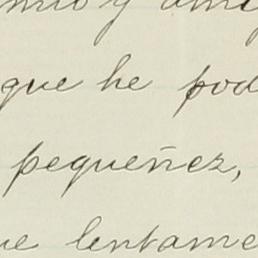 y
que he pod
pequeñez,
ue lentame